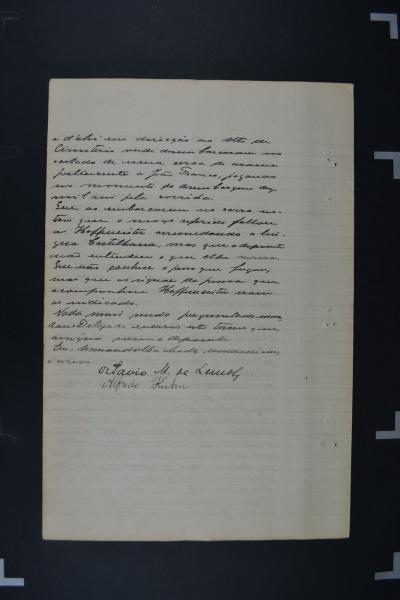 e d'ahi em direcção ao Alto do
Cemiterio onde desembarcaram no
costado de uma cerca de arame
pertencente a João Franco, pagando
no momento do desembarque dez
mil reis pela corrida.
Que ao embarcarem no carro
que o moço referido fallou
a Hoffmeister arremedando a lin-
gua Castelhana, mas que o depoente
não entendeu o que elle
Que não conhece o que fugiu,
mas que os signaes da pessoa que
acompanhava Hoffmeister eram
os indicados.
Nada mais sendo perguntado man-
dou o Delegado encerrar este termo que
assigna com o depoente.
Eu, Armando
o escrevi.
Octavio M. de
Alfredo Kuhn